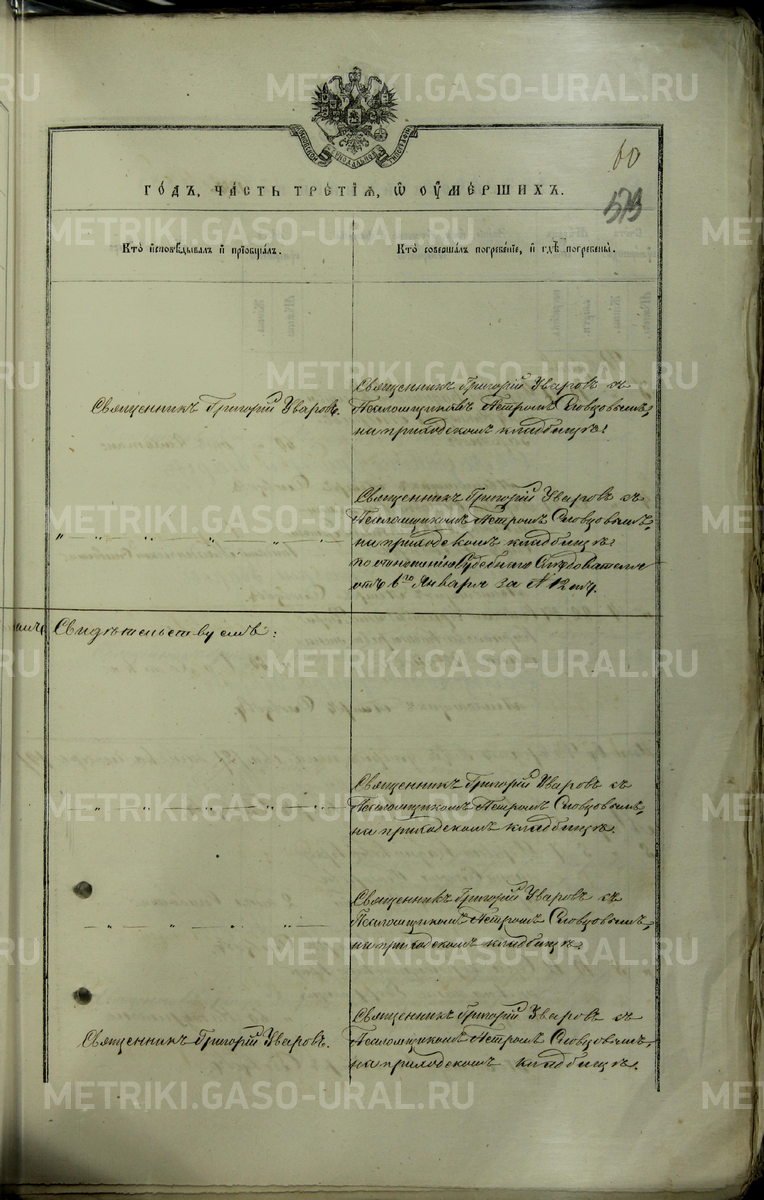 METRIKI.GASO-URAL.RU
60
579
ГО́ДЪ, ЧА́СТЬ ТРЕ́ТІѦ, Ѽ ОУМЕ́РШИХЪ.
Кто̀ и҆сповѣ́дывалъ и҆ прїѡбща́лъ.
Кто̀ соверша́лъ погребе́нїе, и҆ гдѣ̀ погребены̀.
Священникъ Григорій Уваровъ.
Священникъ Григорій Уваровъ съ
Псаломщикомъ Петромъ Словцовымъ,
на приходскомъ кладбищѣ.
Священникъ Григорій Уваровъ съ
Псаломщикомъ Петромъ Словцовымъ,
на приходскомъ кладбищѣ.
по отношенію Судебнаго Слѣдователя
отъ 6го Января за № 12мъ.
Свидѣтельствуемъ:
Священникъ Григорій Уваровъ съ
Псаломщикомъ Петромъ Словцовымъ,
на приходскомъ кладбищѣ.
Священникъ Григорій Уваровъ съ
Псаломщикомъ Петромъ Словцовымъ,
на приходскомъ кладбищѣ.
Священникъ Григорій Уваровъ.
Священникъ Григорій Уваровъ съ
Псаломщикомъ Петромъ Словцовымъ,
на приходскомъ кладбищѣ.